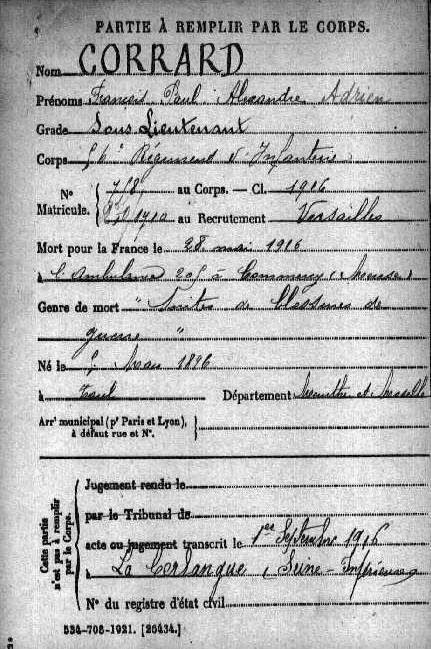 PARTIE À REMPLIR PAR LE CORPS.
Nom CORRARD
Prénoms François Paul Alexandre Adrien
Grade Sous Lieutenant
Corps Régiment d'Infanterie
N° Matricule. 718 au Corps. — Cl. 1916
1710 au Recrutement Versailles
Mort pour la France le 28 mai 1916
à l'Ambulance à Commercy (Meuse)
Genre de mort "Suites de blessures de
guerre"
Né le Mars 1896
à Toul Département Meurthe et Moselle
Arrt municipal (pr Paris et Lyon),
à défaut rue et N°.
Cette partie
n'est pas à remplir
par le Corps.
Jugement rendu le
par le Tribunal de
acte ou jugement transcrit le 1er Septembre 1916
à La Cerlangue, Seine-Inférieure
N° du registre d'état civil
534-708-1921. [26434.]